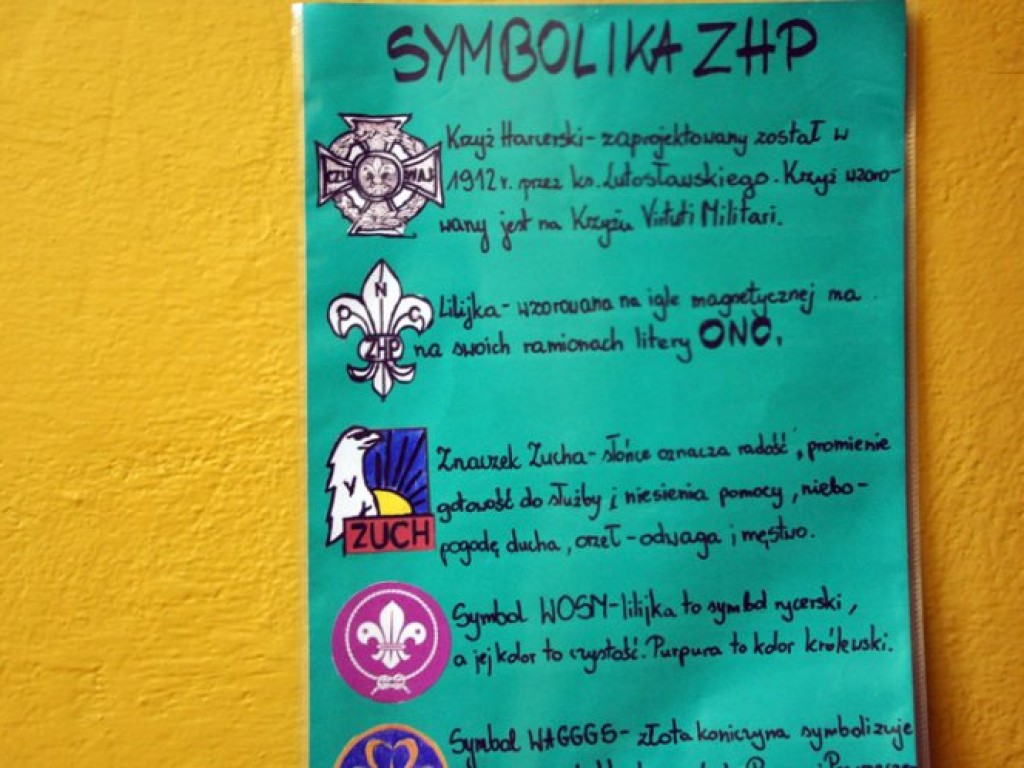 SYMBOLIKA ZHP
CZU WAJ
Krzyż Harcerski - zaprojektowany został w
1912 r. przez ks. Lutosławskiego. Krzyż wzoro-
wany jest na Krzyżu Virtuti Militari.
N
Lilijka - wzorowana na igle magnetycznej ma
ZHP
na swoich ramionach litery ONO.
Znaczek Zucha - słońce oznacza radość, promienie
gotowość do służby i niesienia pomocy, niebo -
ZUCH
pogodę ducha, orzeł - odwaga i męstwo.
Symbol WOSM - lilijka to symbol rycerski,
a jej kolor to czystość. Purpura to kolor królewski.
Symbol WAGGGS - złota koniczyna symbolizuje